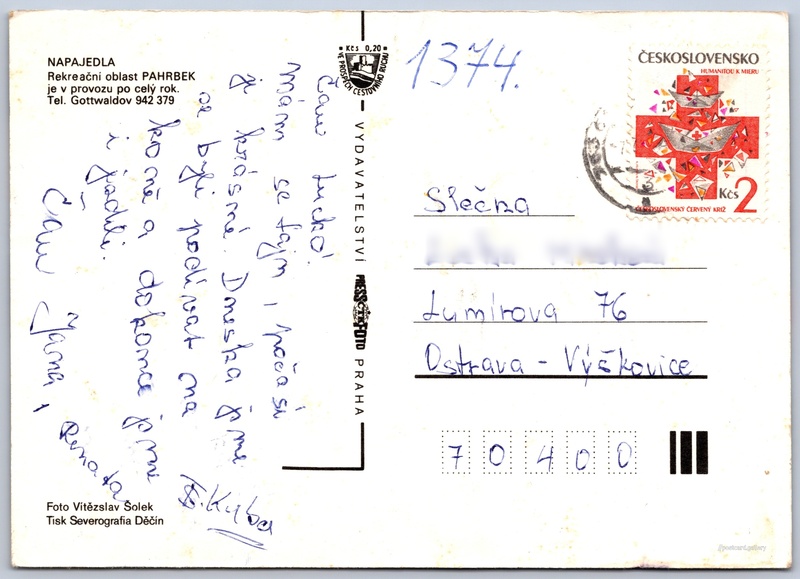 NAPAJEDLA
Rekreační oblast PAHRBEK
je v provozu po celý rok.
Tel. Gottwaldov 942 379
Čau Lucko!
Mám se fajn, počasí
je krásné. Dneska jsme
se byli podívat na
koně a dokonce jsme
i jezdili.
Čau Jana,
Renata
Kuba
Foto Vítězslav Šolek
Tisk Severografia Děčín
Kčs 0,20
VE PROSPĚCH CESTOVNÍHO RUCHU
VYDAVATELSTVÍ PRESSFOTO PRAHA
ČTK
1374.
ČESKOSLOVENSKO
HUMANITOU K MIERU
Kčs 2
ČESKOSLOVENSKÝ ČERVENÝ KRÍŽ
Slečna
Lumírova 76
Ostrava - Výškovice
70400